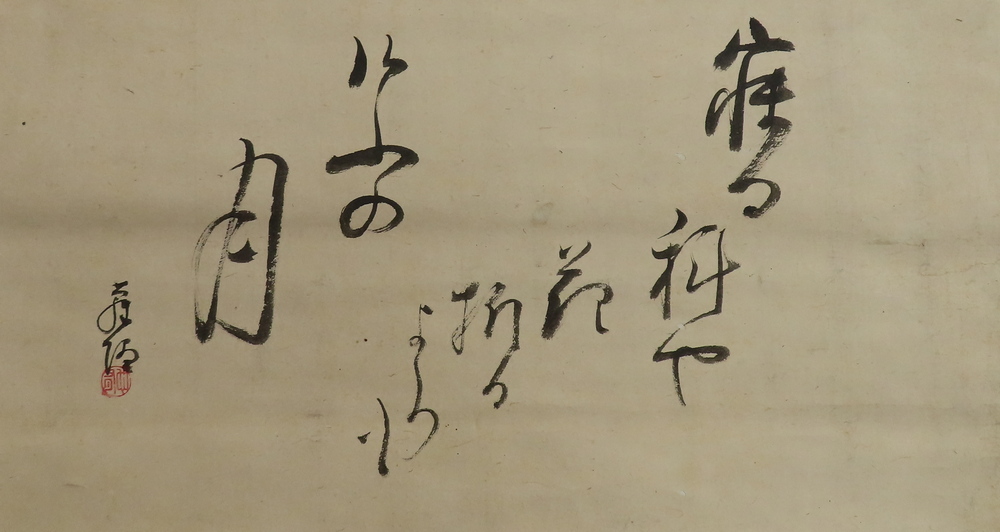 寐る
科や
花
折る
よりも
けふの
月